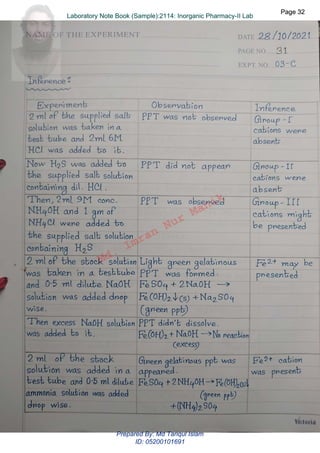 Laboratory Note Book (Sample):2114: Inorganic Pharmacy-II Lab
Page 32
NAME OF THE EXPERIMENT
DATE 28/10/2021
PAGE NO. 31
EXPT. NO. 03-C
Inference:
Experiment
Observation
Inference
2 ml of the supplied salt
solution was taken in a
test tube and 2ml 6M
HCl was added to it.
PPT was not observed
Group-I
cations were
absent
Now H2S was added to
the supplied salt solution
containing dil. HCl.
PPT did not appear
Group-II
cations were
absent
Then, 2ml 9M conc.
NH4OH and 1 gm of
NH4Cl were added to
the supplied salt solution
containing H2S
PPT was observed
Group-III
cations might
be presented
2 ml of the stock solution
was taken in a testtube
and 0.5 ml dilute NaOH
solution was added drop
wise.
Light green gelatinous
PPT was formed.
FeSO4 + 2NaOH →
Fe(OH)2↓(s) + Na2SO4
(green ppt)
Fe2+ may be
presented
Then excess NaOH solution
was added to it.
PPT didn't dissolve.
Fe(OH)2 + NaOH → No reaction
(excess)
2 ml of the stock
solution was added in a
test tube and 0.5 ml dilute
ammonia solution was added
drop wise.
Green gelatinous ppt was
appeared.
FeSO4 + 2NH4OH → Fe(OH)2↓
(green ppt)
+(NH4)2SO4
Fe2+ cation
was present
Md. Imran Nur Manik
Victoria
Prepared By: Md Tariqul Islam
ID: 05200101691